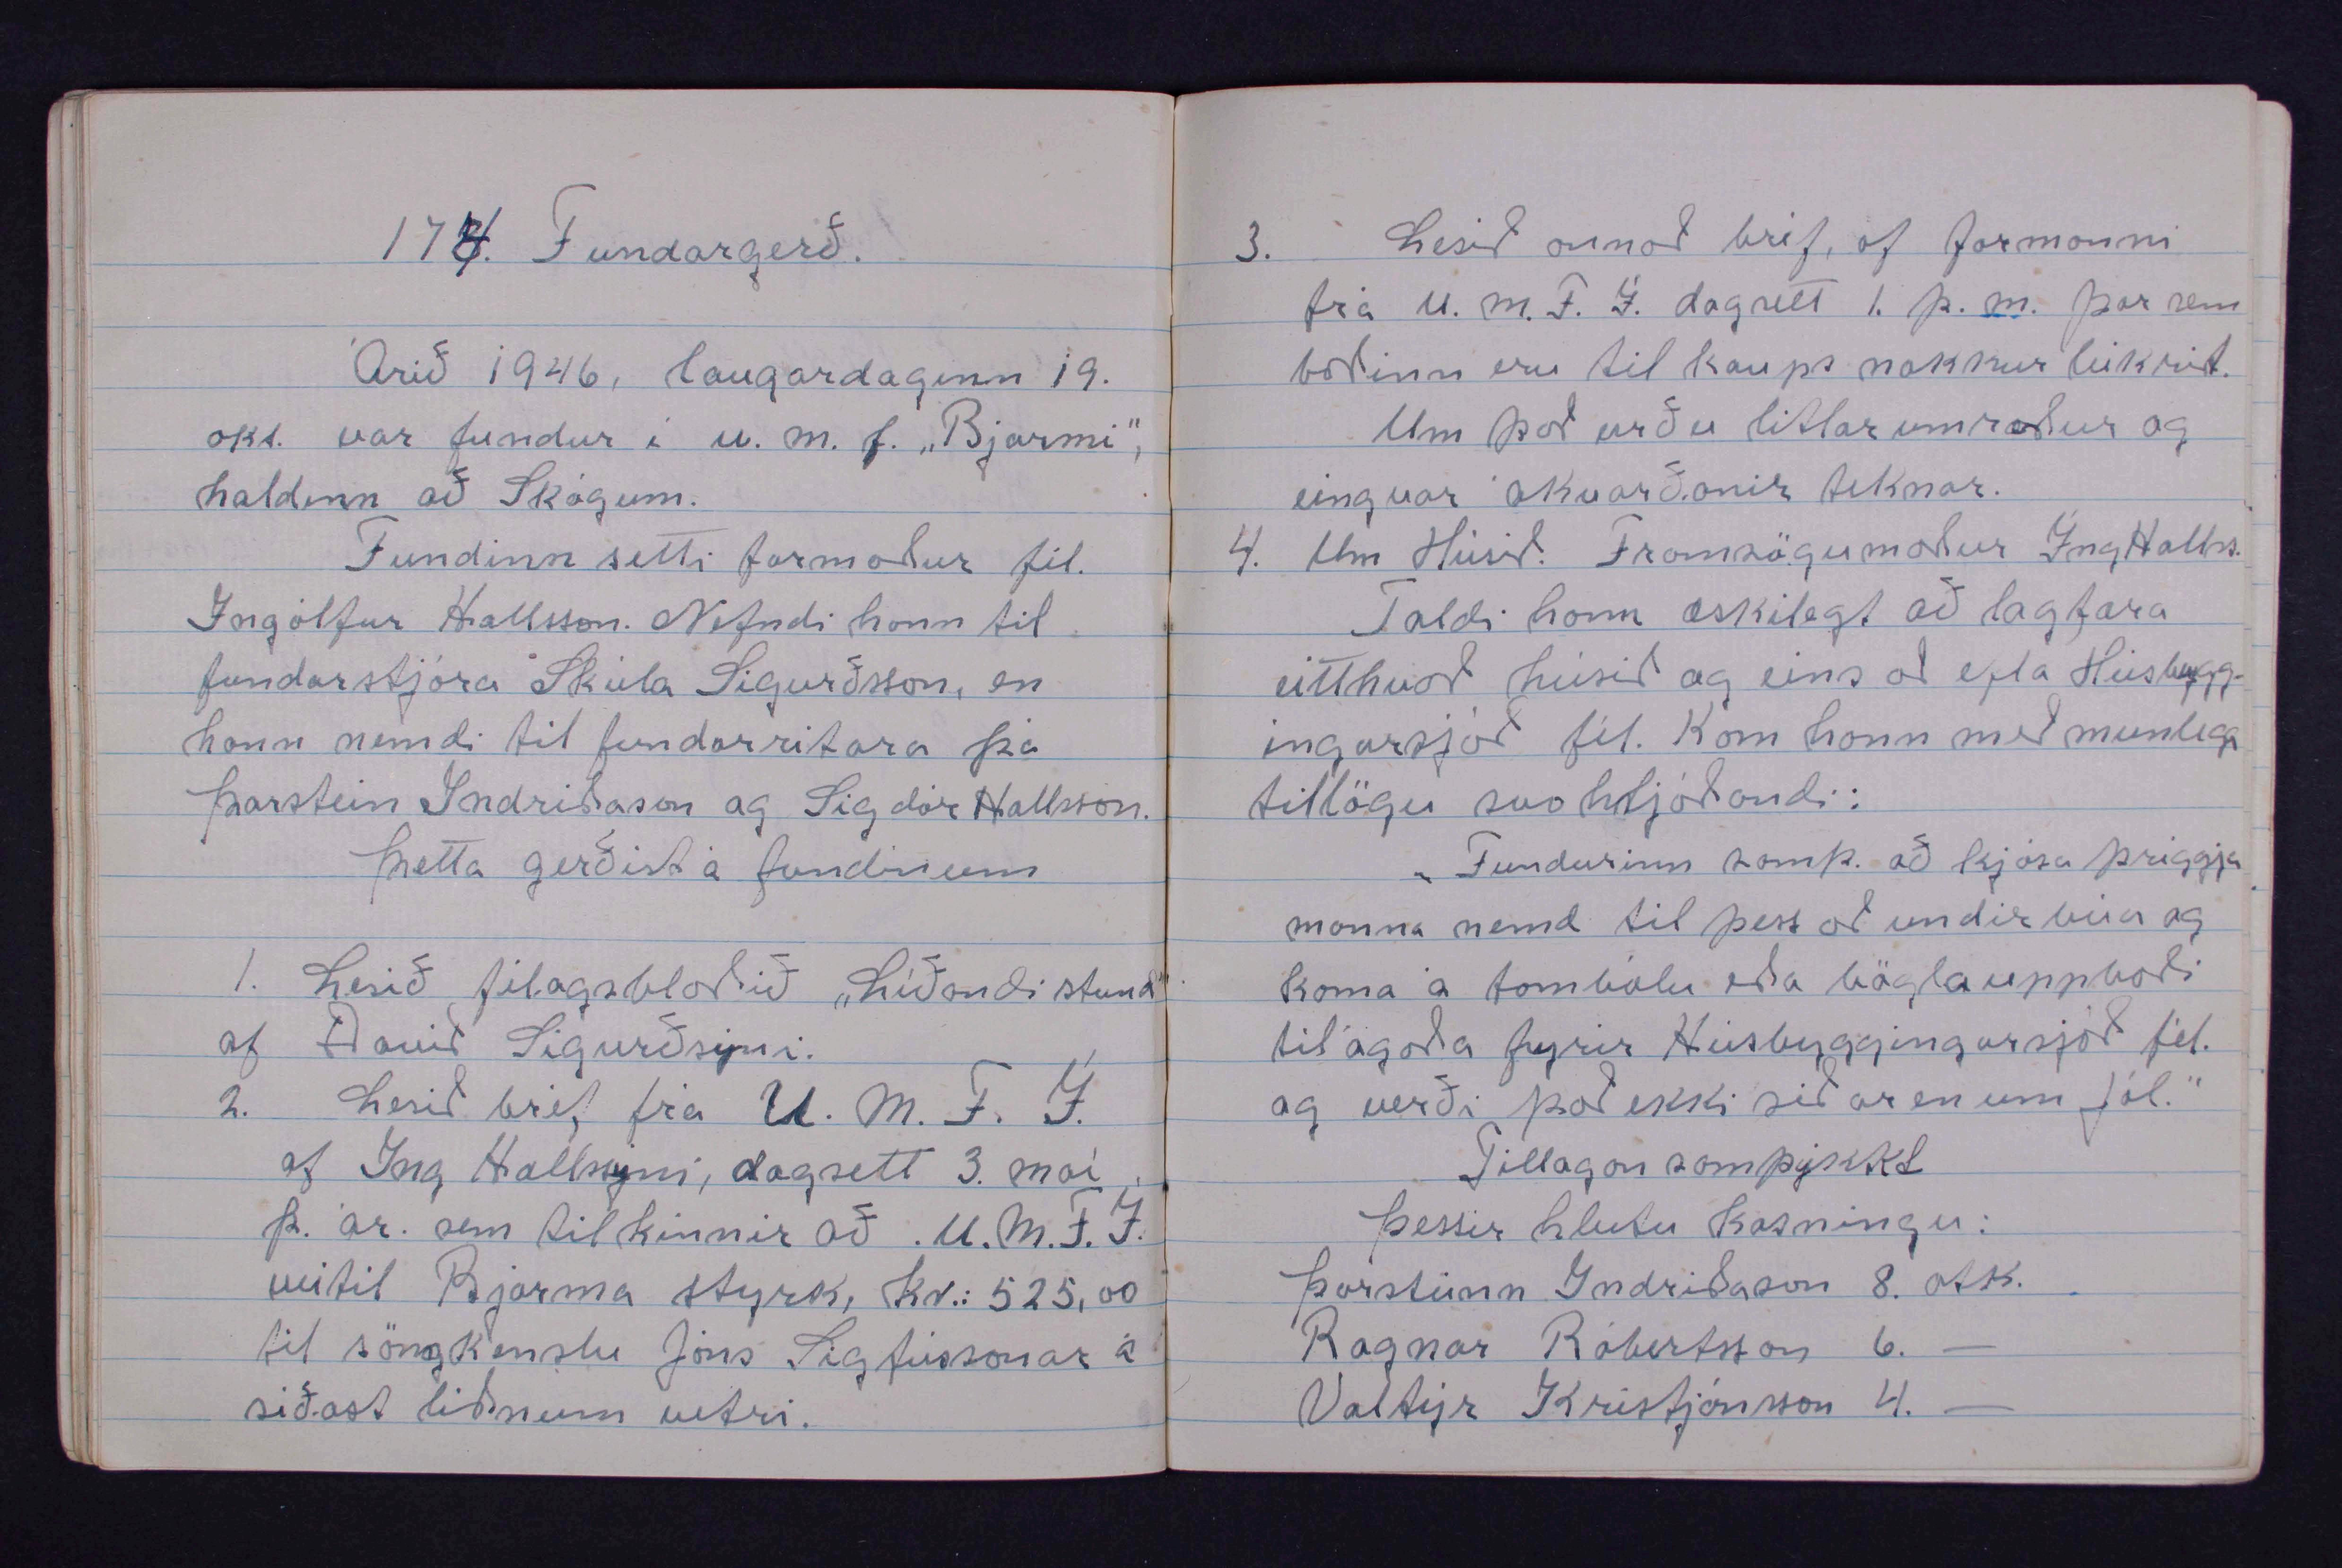 174. Fundargerð.
Árið 1946, laugardaginn 19.
okt. var fundur í u. m. f. „Bjarmi",
haldinn að Skógum.
Fundinn setti formaður fél.
Ingólfur Hallsson. Nefndi hann til
fundarstjóra Skúla Sigurðsson, en
hann nemdi til fundarritara þá
Þorstein Indriðason og Sigdór Hallsson.
Þetta gerðist á fundinum
1. Lesið félagsblaðið „Líðandi stund"
af Davíð Sigurðsyni.
2. Lesið bréf frá U. M. F. Í.
af Ing Hallssyni, dagsett 3. maí
þ. ár. sem tilkinnir að U. M. F. Í.
veitil Bjarma styrk, kr.: 525,00
til söngkenslu Jóns Sigfússonar á
síðast liðnum vetri.
3. Lesið annað bréf, af formanni
frá U. M. F. Í. dagsett 1. þ. m. þar sem
boðinn eru til kaups nokkur leikrit.
Um það urðu litlar umræður og
eingvar ákvarðanir teknar.
4. Um Húsið. Framsögumaður Ing Halls.
Taldi hann æskilegt að lagfæra
eitthvað húsið og eins að efla Húsbygg-
ingarsjóð fél. Kom hann með munlega
tillögu svohljóðandi:
„Fundurinn samþ. að kjósa þriggja
manna nemd til þess að undirbúa og
koma á tombólu eða bögla uppboði
til ágóða fyrir Húsbyggingarsjóð fél.
og verði það ekki síðar en um Jól."
Tillagan samþykkt
Þessir hlutu kosningu:
Þorsteinn Indriðason 8. atk.
Ragnar Róbertsson 6. —
Valtýr Kristjánsson 4. —